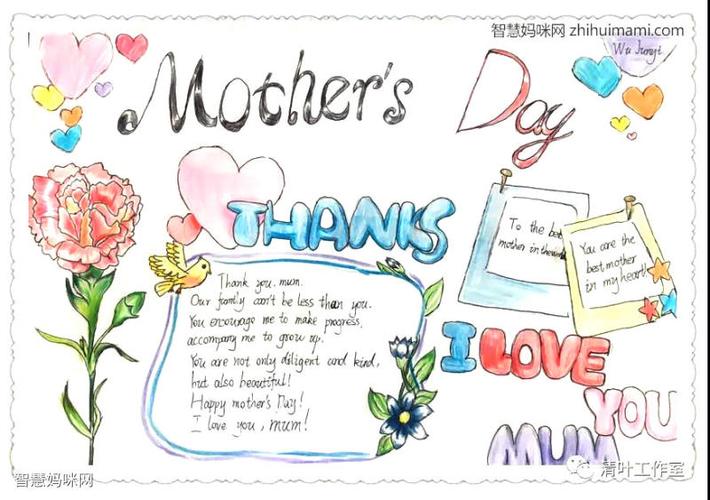 智慧妈咪网 zhihuimami.com
Wu Junyi
Mother's Day
THANKS
To the best
mother in the world
You are the
best mother
in my heart!
Thank you, mum.
Our family can't be less than you.
You encourage me to make progress,
accompany me to grow up.
You are not only diligent and kind,
but also beautiful!
Happy mother's Day!
I love you, mum!
I LOVE
YOU
MUM
智慧妈咪网
清叶工作室